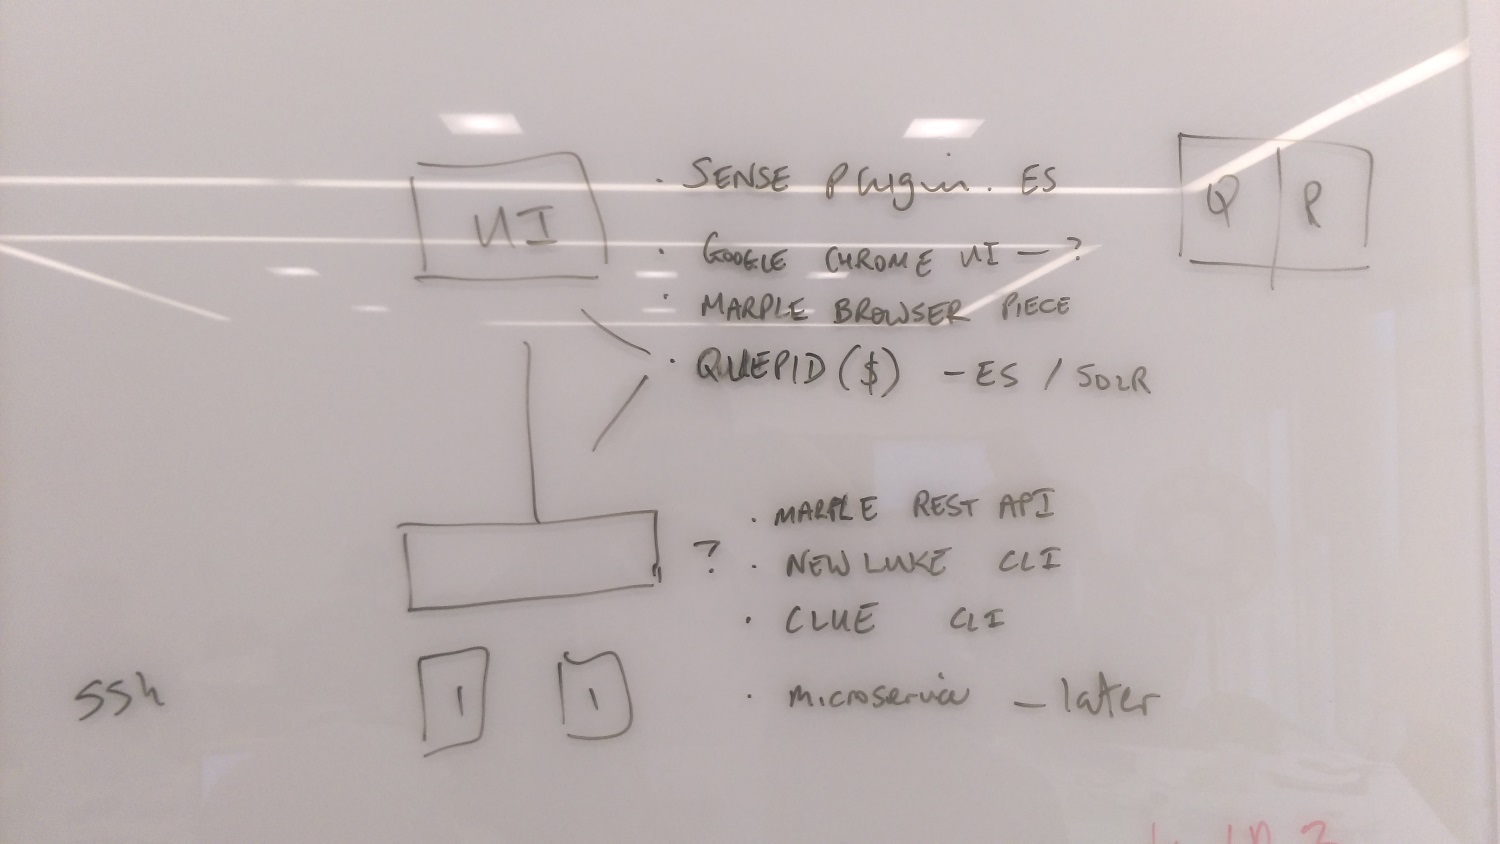 UI
· SENSE Plugin. ES
Q R
· GOOGLE CHROME UI — ?
· MARPLE BROWSER PIECE
· QUEPID ($) - ES / SOLR
· MARPLE REST API
? · NEW LUKE CLI
· CLUE CLI
ssh
I I
· microservice — later